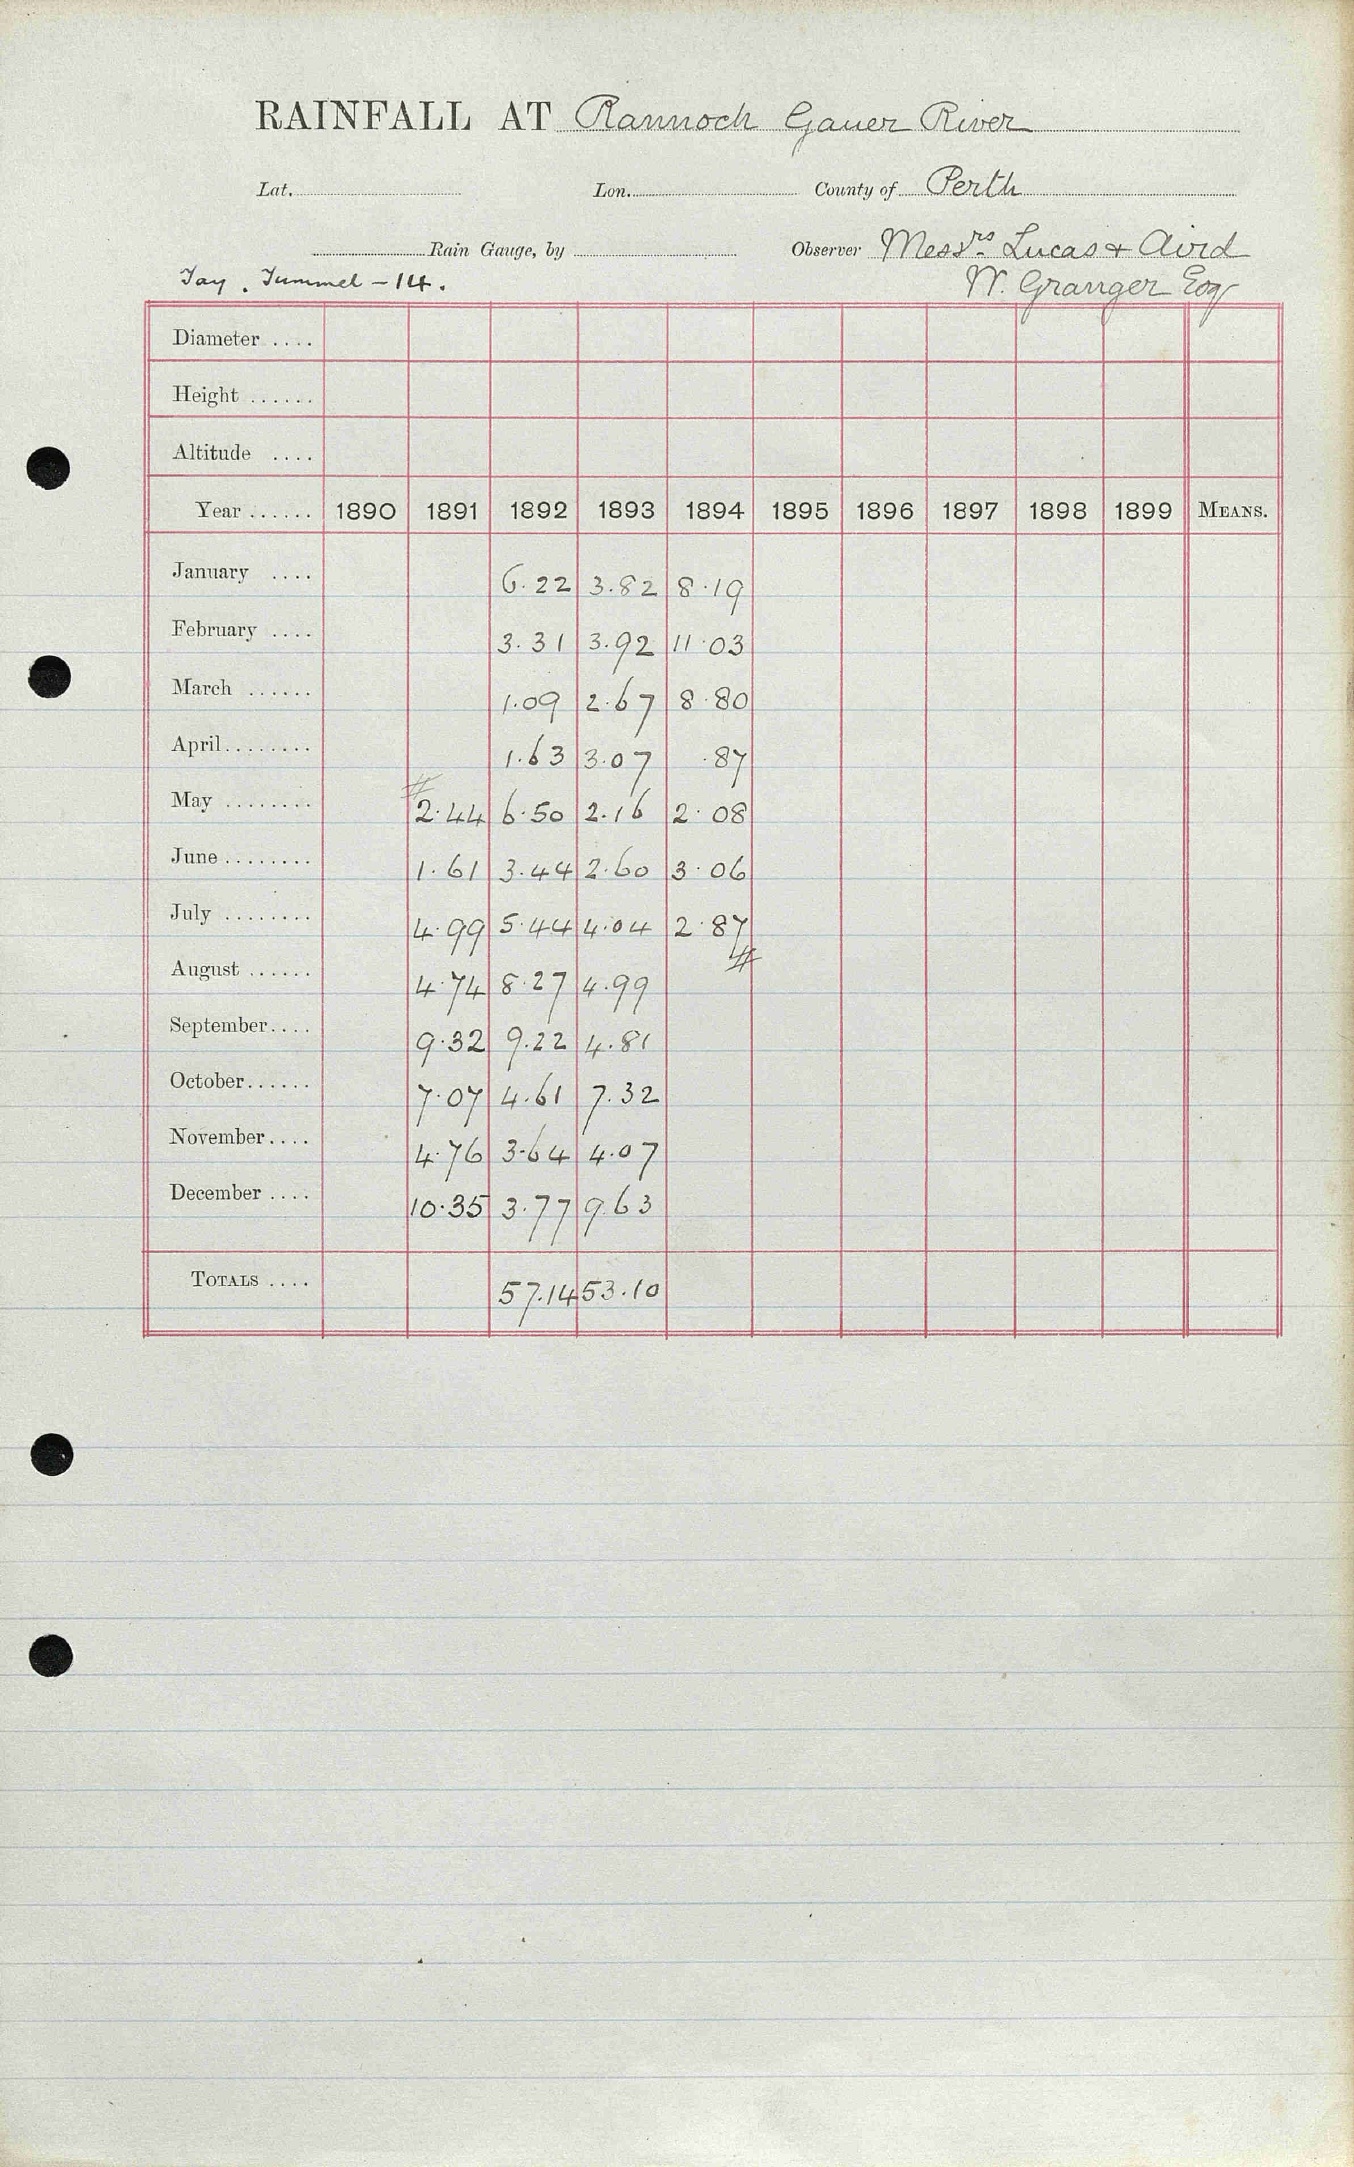 RAINFALL AT Rannoch Gauer River
Lat. Lon. County of Perth
Rain Gauge, by Observer Messrs. Lucas & Aird
Tay. Tummel - 14. W. Granger Esq
Diameter ....
Height ......
Altitude ....
Year ...... 1890 1891 1892 1893 1894 1895 1896 1897 1898 1899 MEANS.
January .... 6.22 3.82 8.19
February .... 3.31 3.92 11.03
March ...... 1.09 2.67 8.80
April........ 1.63 3.07 .87
May ........ # 2.44 6.50 2.16 2.08
June ........ 1.61 3.44 2.60 3.06
July ........ 4.99 5.44 4.04 2.87 #
August ...... 4.74 8.27 4.99
September.... 9.32 9.22 4.81
October...... 7.07 4.61 7.32
November.... 4.76 3.64 4.07
December .... 10.35 3.77 9.63
TOTALS .... 57.14 53.10